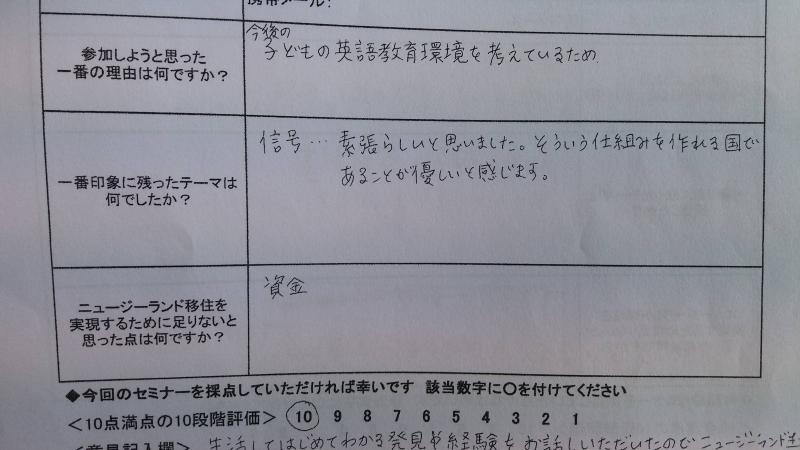 携帯メール:
参加しようと思った
一番の理由は何ですか?
今後の
子どもの英語教育環境を考えているため.
一番印象に残ったテーマは
何でしたか?
信号… 素張らしいと思いました。そういう仕組みを作れる国で
あることが優しいと感じます。
ニュージーランド移住を
実現するために足りないと
思った点は何ですか?
資金
◆今回のセミナーを採点していただければ幸いです 該当数字に〇を付けてください
<10点満点の10段階評価> 10 9 8 7 6 5 4 3 2 1
<意見記入欄> 生活してはじめてわかる発見や経験をお話しいただいたのでニュージーランド